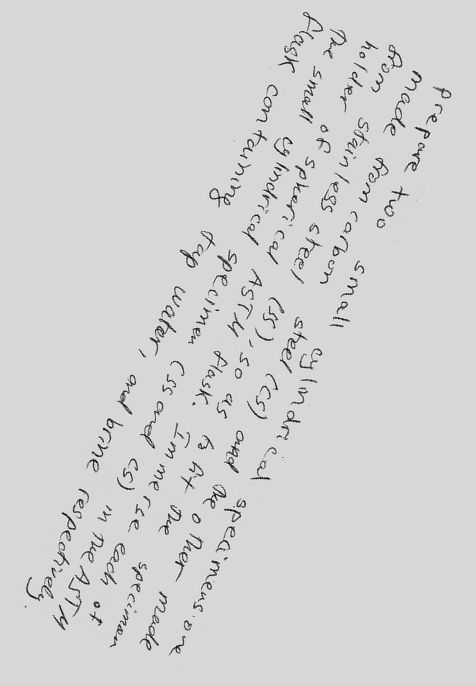 prepare two small cylindrical specimens one
made from carbon steel (CS) and the other made
from stainless steel (SS), so as to fit the specimen
holder of spherical ASTM flask. Immerse each of
The small cylindrical specimen (SS and CS) in the ASTM
flask containing tap water, and brine respectively.